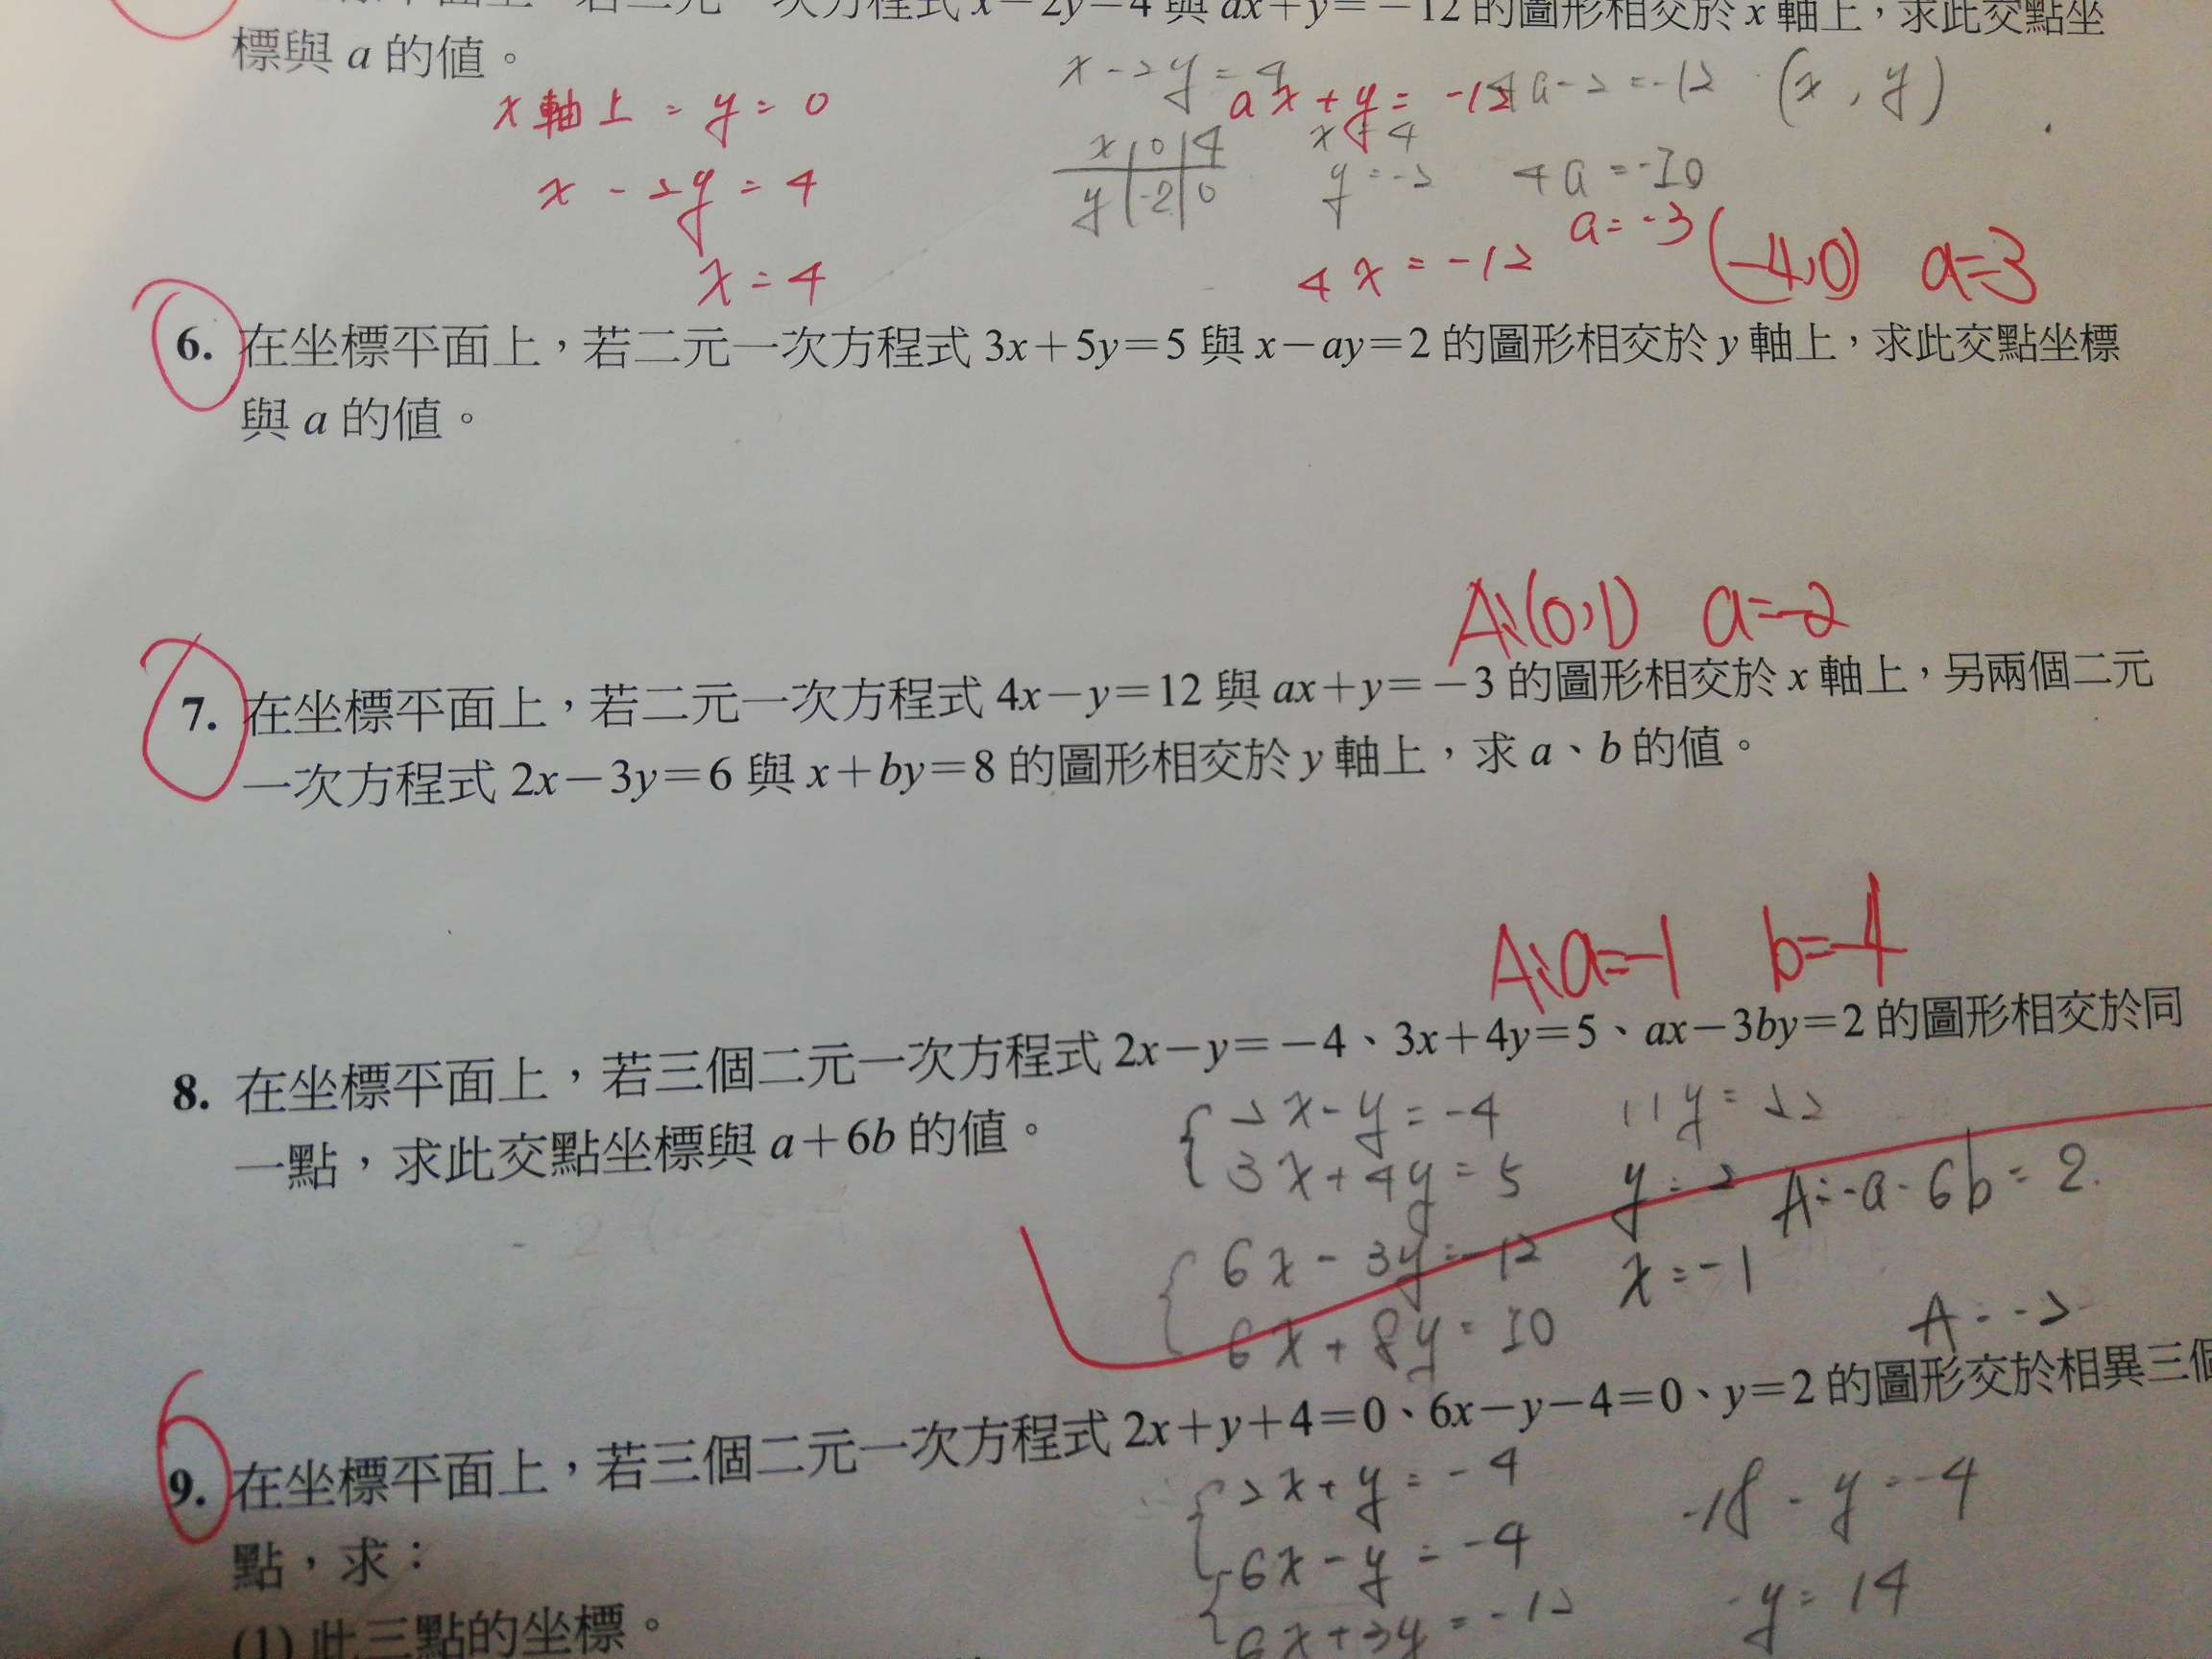 次方程式 x－2y＝4 與 ax＋y＝－12 的圖形相交於 x 軸上，求此交點坐
標與 a 的值。
x軸上 = y = 0
x - 2y = 4
x = 4
x - 2y = 4
x 0 4
y -2 0
ax + y = -12
x = 4
y = -2
4a - 2 = -12
4a = -10
(x, y)
4x = -12
a = -3
(-4,0) a=3
6. 在坐標平面上，若二元一次方程式 3x＋5y＝5 與 x－ay＝2 的圖形相交於 y 軸上，求此交點坐標
與 a 的值。
A:(0,1) a=-2
7. 在坐標平面上，若二元一次方程式 4x－y＝12 與 ax＋y＝－3 的圖形相交於 x 軸上，另兩個二元
一次方程式 2x－3y＝6 與 x＋by＝8 的圖形相交於 y 軸上，求 a、b 的值。
A:a=-1 b=-4
8. 在坐標平面上，若三個二元一次方程式 2x－y＝－4、3x＋4y＝5、ax－3by＝2 的圖形相交於同
一點，求此交點坐標與 a＋6b 的值。
2x - y = -4
3x + 4y = 5
6x - 3y = -12
6x + 8y = 10
11y = 22
y = 2
x = -1
A: -a - 6b = 2
A = -2
9. 在坐標平面上，若三個二元一次方程式 2x＋y＋4＝0、6x－y－4＝0、y＝2 的圖形交於相異三個
點，求：
2x + y = -4
6x - y = -4
6x + 3y = -12
-18 - y = -4
-y = 14
(1) 此三點的坐標。